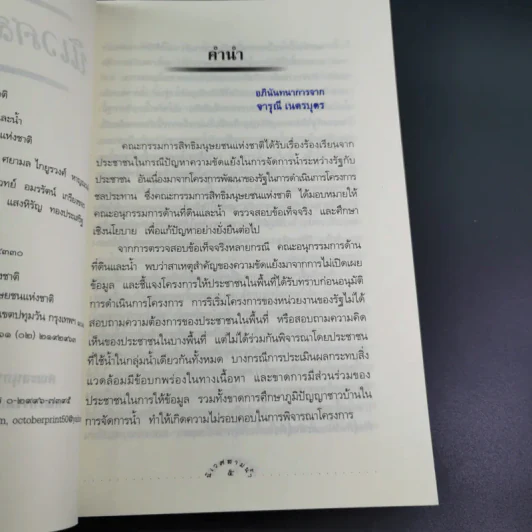 คำนำ
อภินันทนาการจาก
จารุณี เนตรบุตร
คณะกรรมการสิทธิมนุษยชนแห่งชาติได้รับเรื่องร้องเรียนจาก
ประชาชนในกรณีปัญหาความขัดแย้งในการจัดการน้ำระหว่างรัฐกับ
ประชาชน อันเนื่องมาจากโครงการพัฒนาของรัฐในการดำเนินการโครงการ
ชลประทาน ซึ่งคณะกรรมการสิทธิมนุษยชนแห่งชาติ ได้มอบหมายให้
คณะอนุกรรมการด้านที่ดินและน้ำ ตรวจสอบข้อเท็จจริง และศึกษา
เชิงนโยบาย เพื่อแก้ปัญหาอย่างยั่งยืนต่อไป
จากการตรวจสอบข้อเท็จจริงหลายกรณี คณะอนุกรรมการด้าน
ที่ดินและน้ำ พบว่าสาเหตุสำคัญของความขัดแย้งมาจากการไม่เปิดเผย
ข้อมูล และชี้แจงโครงการให้ประชาชนในพื้นที่ได้รับทราบก่อนอนุมัติ
การดำเนินการโครงการ การริเริ่มโครงการของหน่วยงานของรัฐไม่ได้
สอบถามความต้องการของประชาชนในพื้นที่ หรือสอบถามความคิด
เห็นของประชาชนในบางพื้นที่ แต่ไม่ได้ร่วมกันพิจารณาโดยประชาชน
ที่ใช้น้ำในกลุ่มน้ำเดียวกันทั้งหมด บางกรณีการประเมินผลกระทบสิ่ง
แวดล้อมมีข้อบกพร่องในทางเนื้อหา และขาดการมีส่วนร่วมของ
ประชาชนในการให้ข้อมูล รวมทั้งขาดการศึกษาภูมิปัญญาชาวบ้านใน
การจัดการน้ำ ทำให้เกิดความไม่รอบคอบในการพิจารณาโครงการ
๕
ติ
และน้ำ
แห่งชาติ
ศยามล ไกยูรวงศ์
อมรรัตน์
แสงหิรัญ ทองประเสริฐ
๓๓๐
ชาติ
ยชนแห่งชาติ
เขตปทุมวัน กรุงเทพฯ
(๐๒) ๒๑๙๒๙
๐-๒๙๙๖-๗๓๙๕
m, octoberprint50@